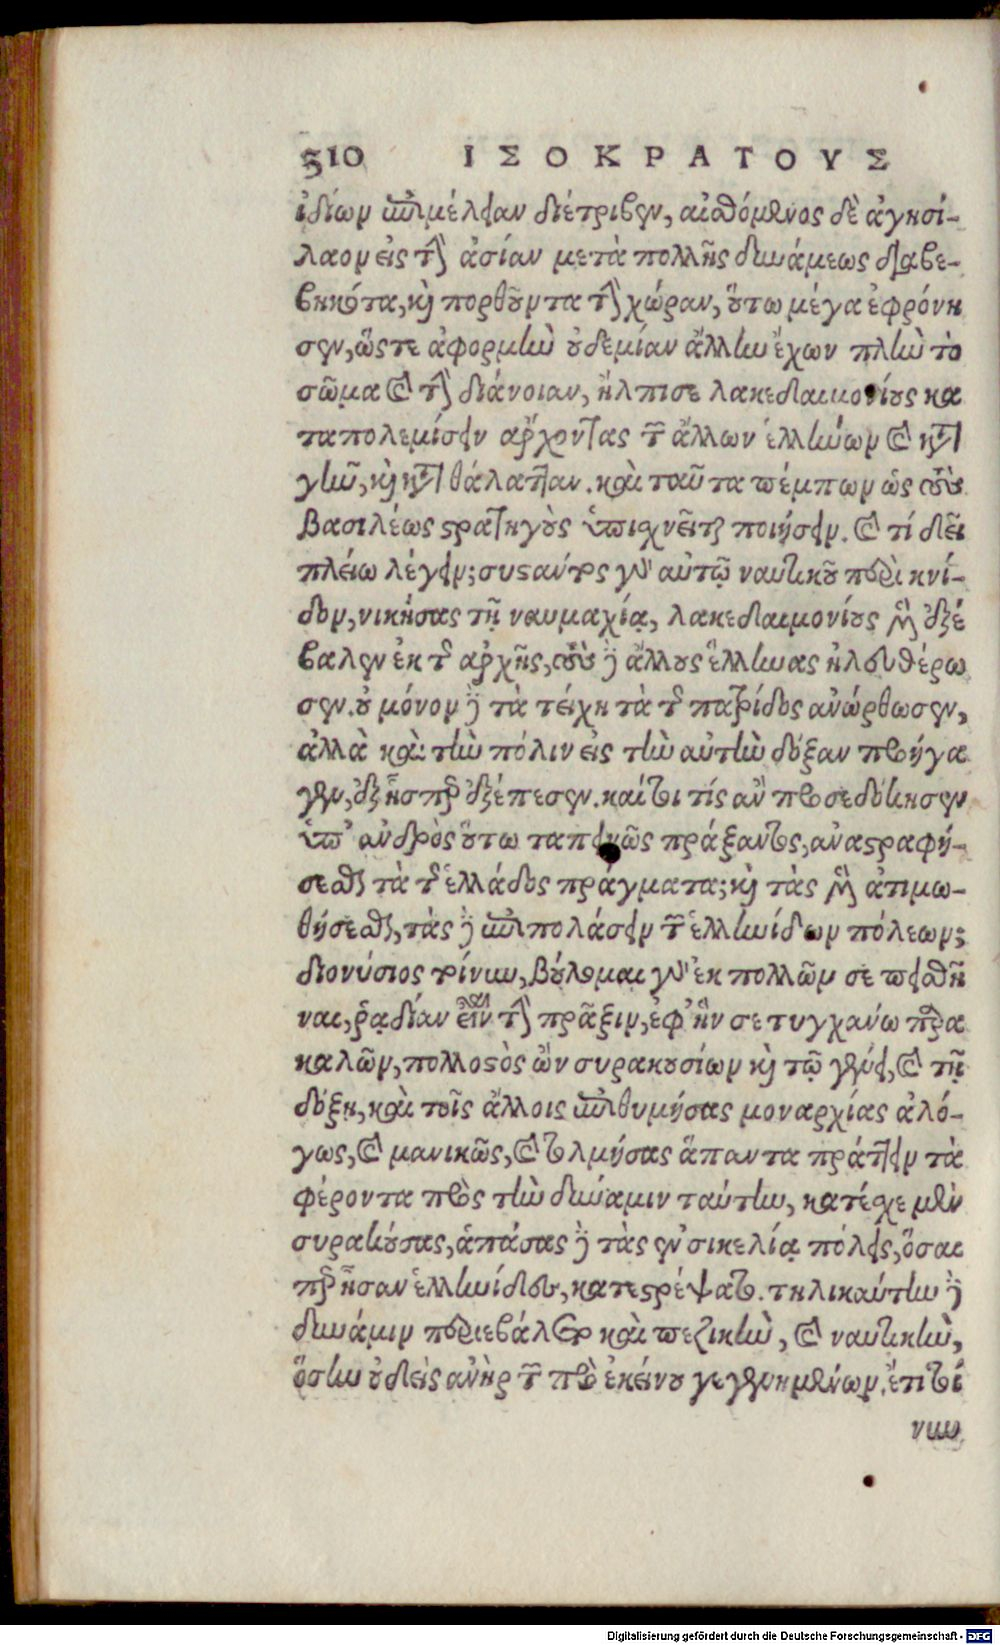 310 ΙΣΟΚΡΑΤΟΥΣ
ἰδίων ἐπιμέλειαν διέτριβεν, αἰσθόμενος δὲ ἀγησί-
λαον εἰς τὴν ἀσίαν μετὰ πολλῆς δυνάμεως διαβε-
βηκότα, καὶ πορθοῦντα τὴν χώραν, οὕτω μέγα ἐφρόνη
σεν, ὥστε ἀφορμὴν οὐδεμίαν ἄλλην ἔχων πλὴν τὸ
σῶμα καὶ τὴν διάνοιαν, ἤλπισε λακεδαιμονίους κα
ταπολεμήσειν ἄρχοντας τῶν ἄλλων ἑλλήνων καὶ κατὰ
γῆν, καὶ κατὰ θάλατταν. καὶ ταῦτα πέμπων ὡς τοὺς
βασιλέως στρατηγοὺς ὑπισχνεῖται ποιήσειν. καὶ τί δεῖ
πλείω λέγειν; συστάντος γὰρ αὐτῷ ναυτικοῦ περὶ κνί-
δον, νικήσας τῇ ναυμαχίᾳ, λακεδαιμονίους μὲν ἐξέ
βαλεν ἐκ τῆς ἀρχῆς, τοὺς δὲ ἄλλους ἕλληνας ἠλευθέρω
σεν. οὐ μόνον δὲ τὰ τείχη τὰ τῆς πατρίδος ἀνώρθωσεν,
ἀλλὰ καὶ τὴν πόλιν εἰς τὴν αὐτὴν δόξαν προήγα
γεν, ἐξ ἧσπερ ἐξέπεσεν. καίτοι τίς ἂν προσεδόκησεν
ὑπ' ἀνδρὸς οὕτω ταπεινῶς πράξαντος, ἀναστραφή-
σεσθαι τὰ τῆς ἑλλάδος πράγματα; καὶ τὰς μὲν ἀτιμω-
θήσεσθαι, τὰς δὲ ἐπιπολάσειν τῶν ἑλληνίδων πόλεων;
διονύσιος τοίνυν, βούλομαι γὰρ ἐκ πολλῶν σε πεισθῆ
ναι, ῥᾳδίαν εἶναι τὴν πρᾶξιν, ἐφ' ἥν σε τυγχάνω παρα
καλῶν, πολλοστὸς ὢν συρακουσίων καὶ τῷ γένει, καὶ τῇ
δόξῃ, καὶ τοῖς ἄλλοις ἐπιθυμήσας μοναρχίας ἀλό-
γως, καὶ μανικῶς, καὶ τολμήσας ἅπαντα πράττειν τὰ
φέροντα πρὸς τὴν δύναμιν ταύτην, κατέσχε μὲν
συρακούσας, ἁπάσας δὲ τὰς ἐν σικελίᾳ πόλεις, ὅσαι
περ ἦσαν ἑλληνίδες, κατεστρέψατο. τηλικαύτην δὲ
δύναμιν περιεβάλετο καὶ πεζικὴν, καὶ ναυτικὴν,
ὅσην οὐδεὶς ἀνὴρ τῶν πρὸ ἐκείνου γεγενημένων. ἔτι τοί
νυν
Digitalisierung gefördert durch die Deutsche Forschungsgemeinschaft - DFG